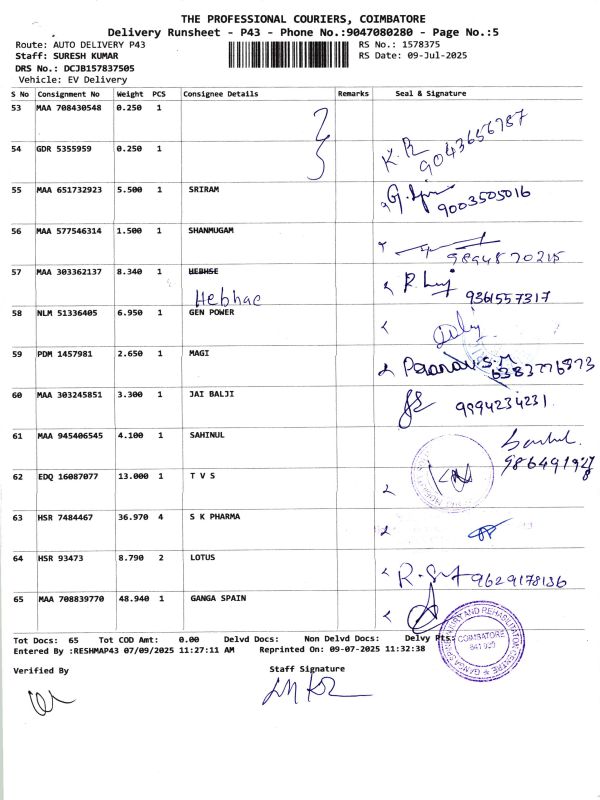 THE PROFESSIONAL COURIERS, COIMBATORE
Delivery Runsheet - P43 - Phone No.:9047080280 - Page No.:5
Route: AUTO DELIVERY P43 RS No.: 1578375
Staff: SURESH KUMAR RS Date: 09-Jul-2025
DRS No.: DCJB157837505
Vehicle: EV Delivery
S No Consignment No Weight PCS Consignee Details Remarks Seal & Signature
53 MAA 708430548 0.250 1
54 GDR 5355959 0.250 1 K. R 9043656787
55 MAA 651732923 5.500 1 SRIRAM 9003505016
56 MAA 577546314 1.500 1 SHANMUGAM 9894870215
57 MAA 303362137 8.340 1 HEBHSE 9361557317
Hebhac
58 NLM 51336405 6.950 1 GEN POWER
59 PDM 1457981 2.650 1 MAGI 6383776873
60 MAA 303245851 3.300 1 JAI BALJI 9994234231
61 MAA 945406545 4.100 1 SAHINUL
62 EDQ 16087077 13.000 1 T V S
63 HSR 7484467 36.970 4 S K PHARMA
64 HSR 93473 8.790 2 LOTUS 9629178136
65 MAA 708839770 48.940 1 GANGA SPAIN
Tot Docs: 65 Tot COD Amt: 0.00 Delvd Docs: Non Delvd Docs: Delvy Pts:
Entered By :RESHMAP43 07/09/2025 11:27:11 AM Reprinted On: 09-07-2025 11:32:38
COIMBATORE
Verified By Staff Signature